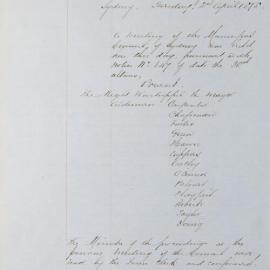 Sydney. Tuesday, 2nd April 1878
A Meeting of the Municipal
Council of Sydney was held
on this day, pursuant to
Notice No. of date the 30th
ultimo,
Present
The Right Worshipful the Mayor
Aldermen
Chapman
Green
O'Connor
Palmer
Playfair
Roberts
Taylor
Young
The Minutes of the proceedings at the
previous Meeting of the Council were
read by the Town Clerk and confirmed